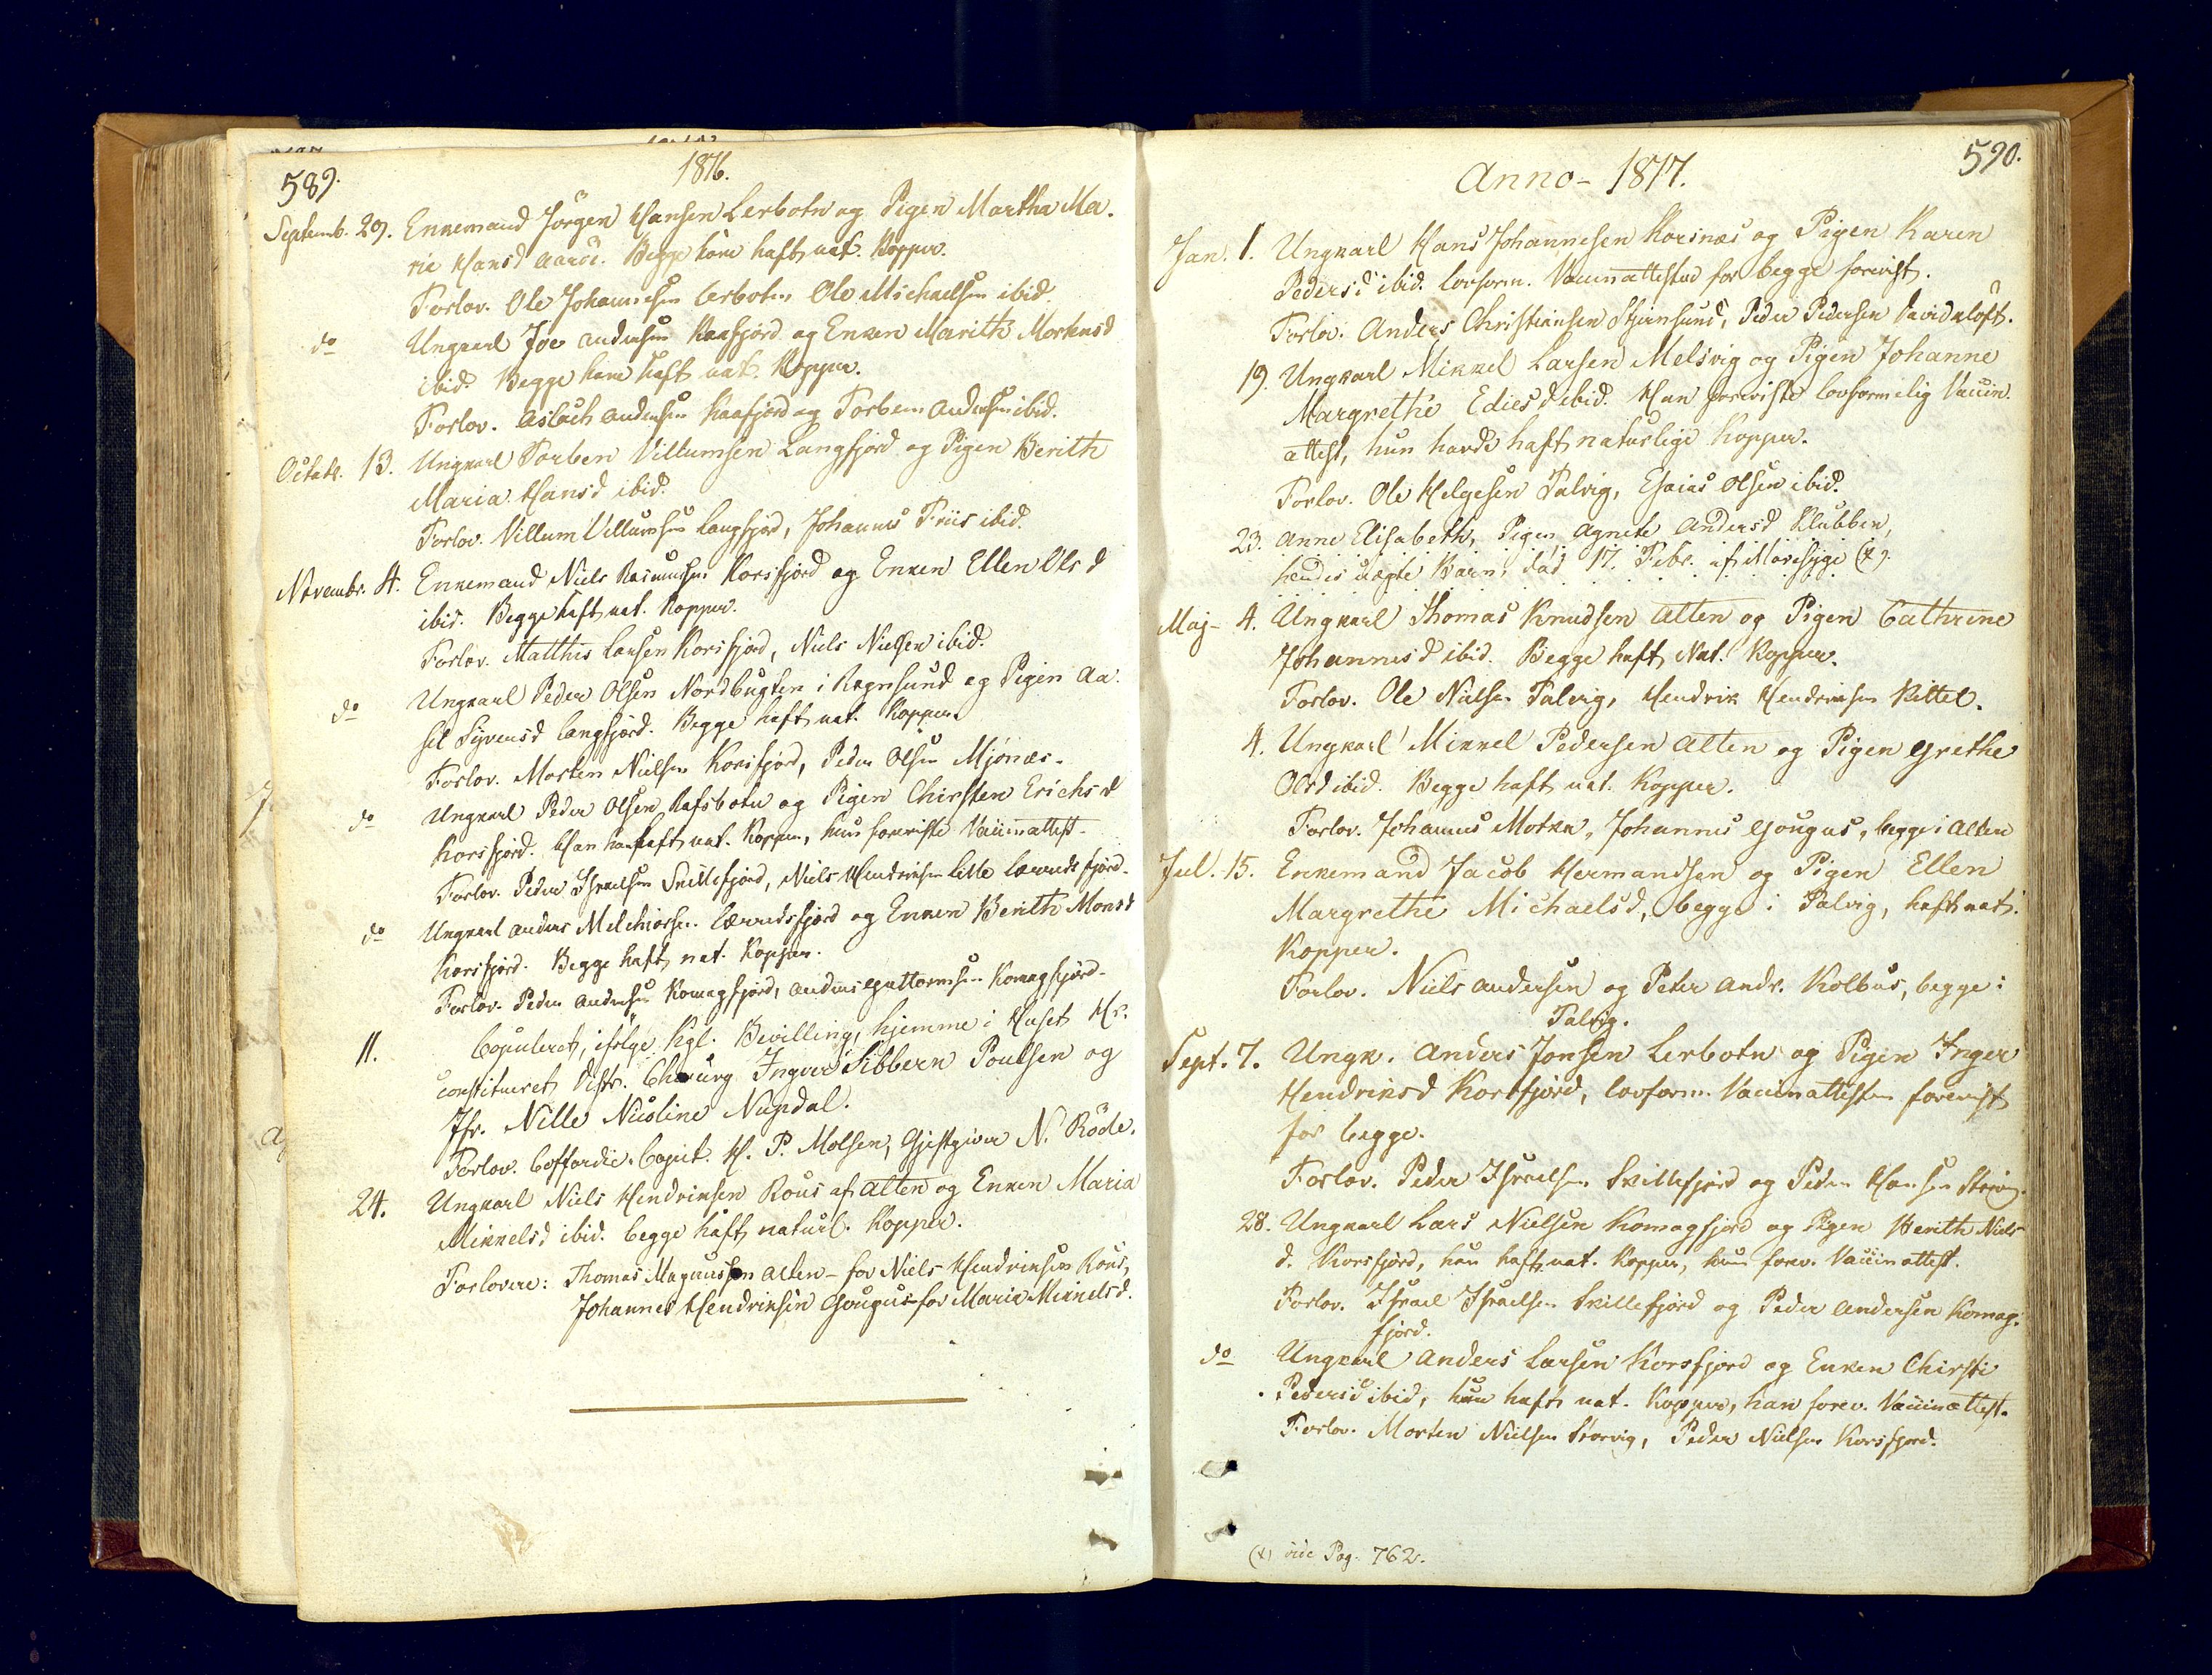 589.
1816.
Septemb. 29. Enkemand Jörgen Hansen Lerbotn og Pigen Martha Ma-
rie Hansd Aaröe. Begge have haft nat. Kopper.
Forlov. Ole Johannesen Lerbotn, Ole Michaelsen ibid.
do Ungkarl Joe Andersen Kaafjord og Enken Marith Mortensd
ibid. Begge have haft nat. Kopper.
Forlov. Aslach Andersen Kaafjord og Torben Andersen ibid.
Octobr. 13. Ungkarl Torben Villumsen Langfjord og Pigen Berith
Maria Hansd ibid.
Forlov. Villum Villumsen Langfjord, Johannes Friis ibid.
Novembr. 4. Enkemand Niels Rasmusen Korsfjord og Enken Ellen Olsd
ibid. Begge haft nat. Kopper.
Forlov. Matthis Larsen Korsfjord, Niels Nielsen ibid.
do Ungkarl Peder Olsen Nordbugten i Rognsund og Pigen Aa-
sel Syvensd Langfjord. Begge haft nat. Kopper.
Forlov. Morten Nielsen Korsfjord, Peder Olsen Mjönæs.
do Ungkarl Peder Olsen Rafsbotn og Pigen Chirsten Erichsd
Korsfjord. Han haft nat. Kopper, hun foreviste Vaccinattest.
Forlov. Peder Israelsen Skillefjord, Niels Hendriksen Lille Lerredsfjord.
do Ungkarl Anders Melchiorsen Lerredsfjord og Enken Berith Monsd
Korsfjord. Begge haft nat. Kopper.
Forlov. Peder Andersen Komagfjord, Anders Guttormsen Komagfjord.
11. Copuleret, ifölge Kgl. Bevilling, hjemme i Huset Hr.
constitueret Distr. Chirurg Ingver Sibbern Poulsen og
Jfr. Nille Nicoline Nupdal.
Forlov. Coffardie-Capit. H. P. Molsen, Gjestgiver N. Röde.
24. Ungkarl Niels Hendriksen Rous af Alten og Enken Maria
Mikkelsd ibid. begge haft naturl. Kopper.
Forlovere: Thomas Magnussen Alten – for Niels Hendriksen Rous,
Johannes Hendriksen Gougus for Maria Mikkelsd.
590.
Anno – 1817.
Jan. 1. Ungkarl Hans Johannesen Korsnæs og Pigen Karen
Pedersd ibid. lovform. Vaccinattester for begge forevist.
Forlov. Anders Christiansen Stjernsund, Peder Pedersen Davidkloft.
19. Ungkarl Mikkel Larsen Melsvig og Pigen Johanne
Margrethe Ediesd ibid. Han foreviste lovformelig Vaccin-
attest, hun havde haft naturlige Kopper.
Forlov. Ole Helgesen Talvig, Esaias Olsen ibid.
23. Anne Elisabeth, Pigen Agnete Andersd Klubben,
hendes uægte Barn, död 17. Febr. af Mavesyge (x).
Maj – 4. Ungkarl Thomas Knudsen Alten og Pigen Cathrine
Johannesd ibid. Begge haft Nat. Kopper.
Forlov. Ole Nielsen Talvig, Hendrik Hendriksen Kittel.
4. Ungkarl Mikkel Pedersen Alten og Pigen Grethe
Olsd ibid. Begge haft nat. Kopper.
Forlov. Johannes Motka, Johannes Gougus, begge i Alten
Jul. 15. Enkemand Jacob Hermandsen og Pigen Ellen
Margrethe Michaelsd, begge i Talvig, haft nat.
Kopper.
Forlov. Niels Andersen og Peter Andr. Kolbus, begge i
Talvig.
Sept. 7. Ungk. Anders Jonsen Lerbotn og Pigen Inger
Hendriksd Korsfjord, lovform. Vaccinattester forevist
for begge.
Forlov. Peder Israelsen Skillefjord og Peder Hansen
28. Ungkarl Lars Nielsen Komagfjord og Pigen Berith Niels-
d. Korsfjord, han haft nat. Kopper, hun forev. Vaccinattest.
Forlov. Israel Israelsen Skillefjord og Peder Andersen Komag-
fjord.
do Ungkarl Anders Larsen Korsfjord og Enken Chirsti
Pedersd ibid, hun haft nat. Kopper, han forev. Vaccinattest.
Forlov. Morten Nielsen Storvig, Peder Nielsen Korsfjord.
(x) vide Pag. 762.